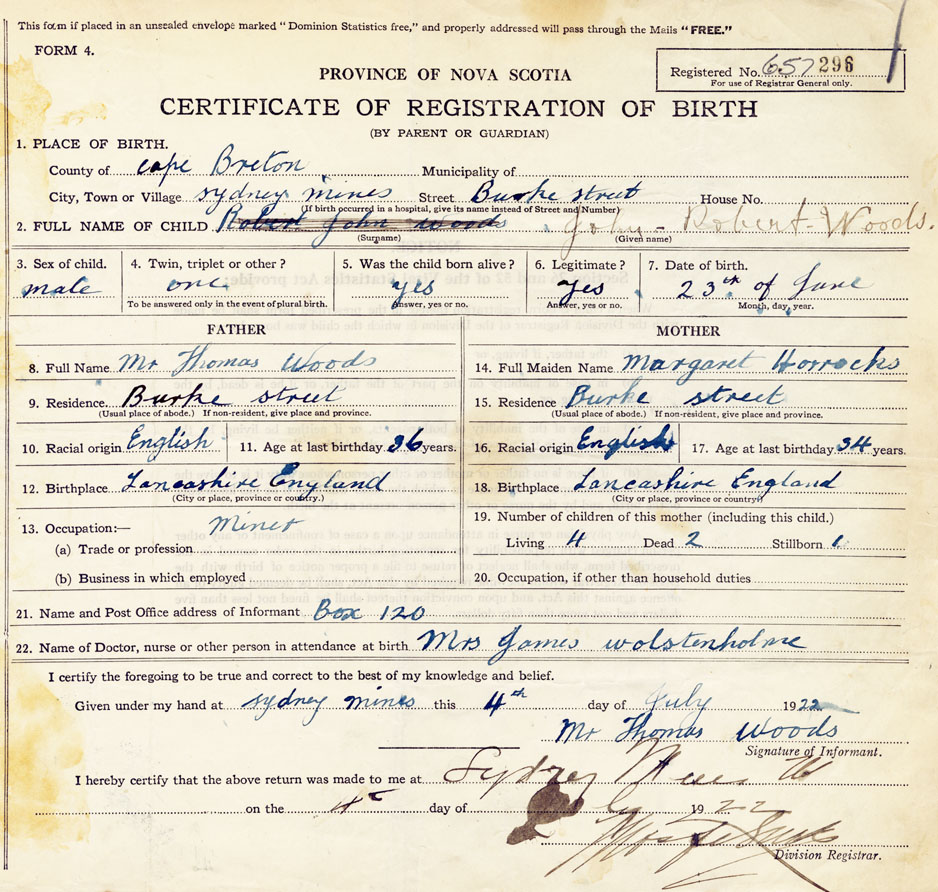 This form if placed in an unsealed envelope marked "Dominion Statistics free," and properly addressed will pass through the Mails "FREE."
FORM 4.
Registered No. 657 296
For use of Registrar General only.
PROVINCE OF NOVA SCOTIA
CERTIFICATE OF REGISTRATION OF BIRTH
(BY PARENT OR GUARDIAN)
1. PLACE OF BIRTH.
County of cape Breton Municipality of
City, Town or Village sydney mines Street Burke street House No.
(If birth occurred in a hospital, give its name instead of Street and Number)
2. FULL NAME OF CHILD Robert John woods John - Robert - Woods.
(Surname) (Given name)
3. Sex of child. 4. Twin, triplet or other? 5. Was the child born alive? 6. Legitimate? 7. Date of birth.
male one yes yes 23rd of June
To be answered only in the event of plural birth. Answer, yes or no. Answer, yes or no. Month, day, year.
FATHER MOTHER
8. Full Name Mr Thomas Woods 14. Full Maiden Name Margaret Horrocks
9. Residence Burke street 15. Residence Burke street
(Usual place of abode.) If non-resident, give place and province. (Usual place of abode.) If non-resident, give place and province.
10. Racial origin English 11. Age at last birthday 36 years. 16. Racial origin English 17. Age at last birthday 34 years.
12. Birthplace Lancashire England 18. Birthplace Lancashire England
(City or place, province or country.) (City or place, province or country)
13. Occupation:— Miner 19. Number of children of this mother (including this child.)
(a) Trade or profession Living 4 Dead 2 Stillborn 1
(b) Business in which employed 20. Occupation, if other than household duties
21. Name and Post Office address of Informant Box 120
22. Name of Doctor, nurse or other person in attendance at birth Mrs James wolstenholme
I certify the foregoing to be true and correct to the best of my knowledge and belief.
Given under my hand at sydney mines this 4th day of July 1922
Mr Thomas woods
Signature of Informant.
I hereby certify that the above return was made to me at Sydney Mines
on the 4th day of 1922
Division Registrar.